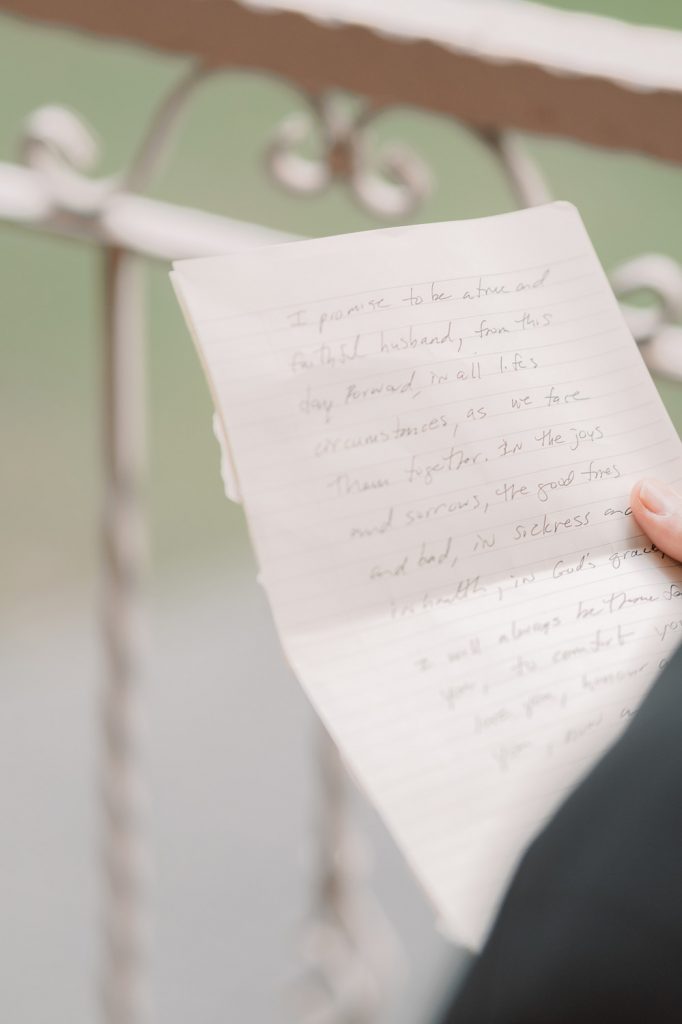 I promise to be a true and
faithful husband, from this
day forward, in all lifes
circumstances, as we face
them together. In the joys
and sorrows, the good times
and bad, in sickness and
in health, in God's grace,
I will always be there
you, to comfort
love you, honour
you, now